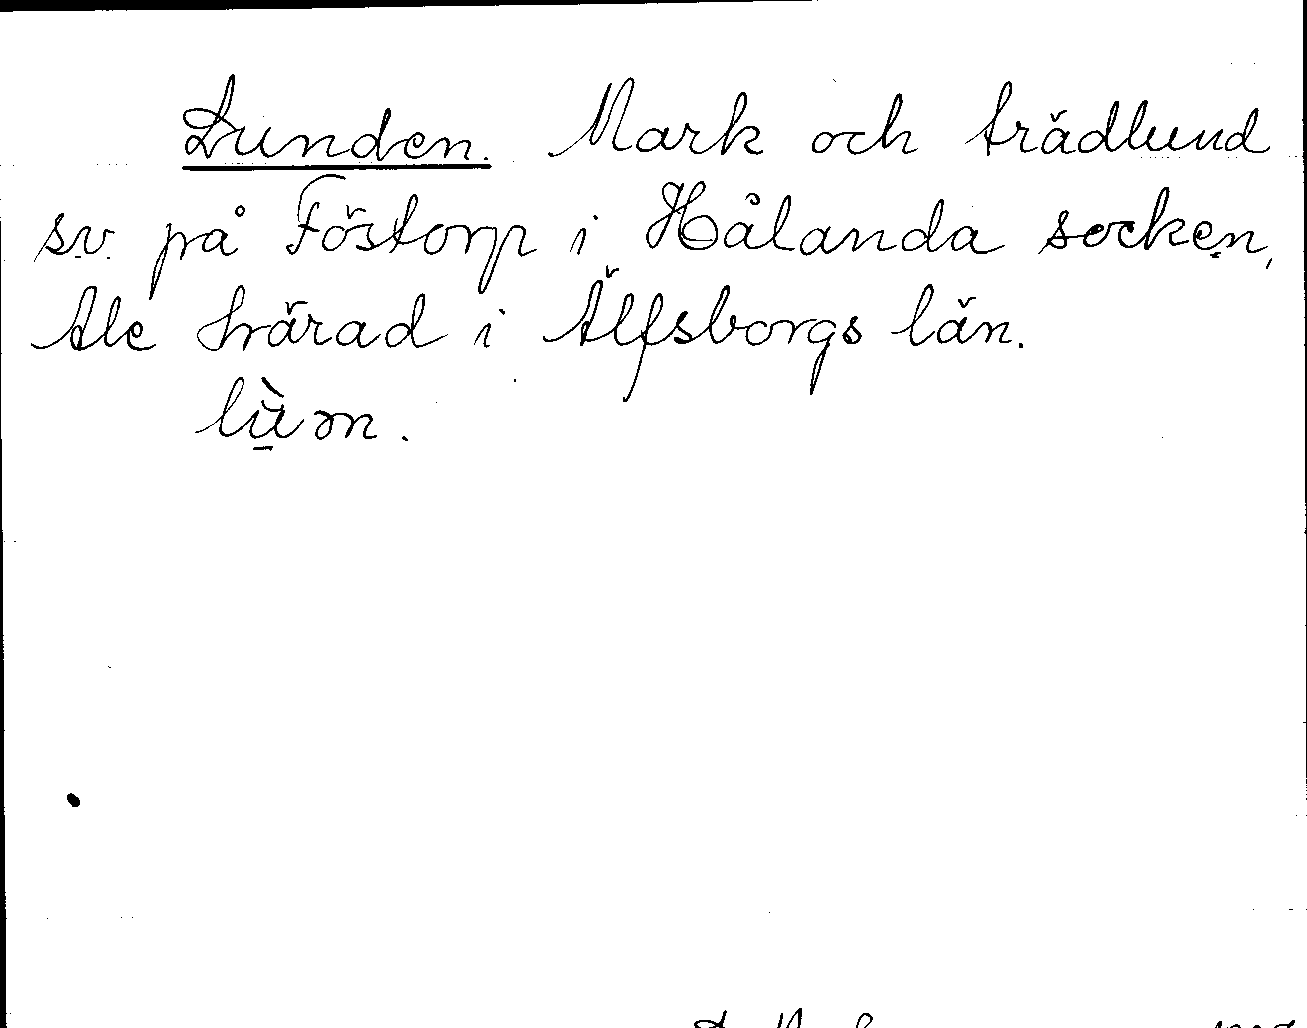 Lunden. Mark och trädlund
sv. påFöstorp i Hålanda socken,
Ale härad i Älfsborgs län.